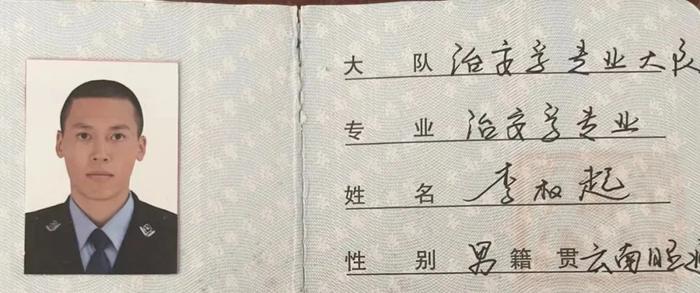 大 队 治安学专业大队
专 业 治安学专业
姓 名 李权起
性 别 男 籍 贯 云南昭通